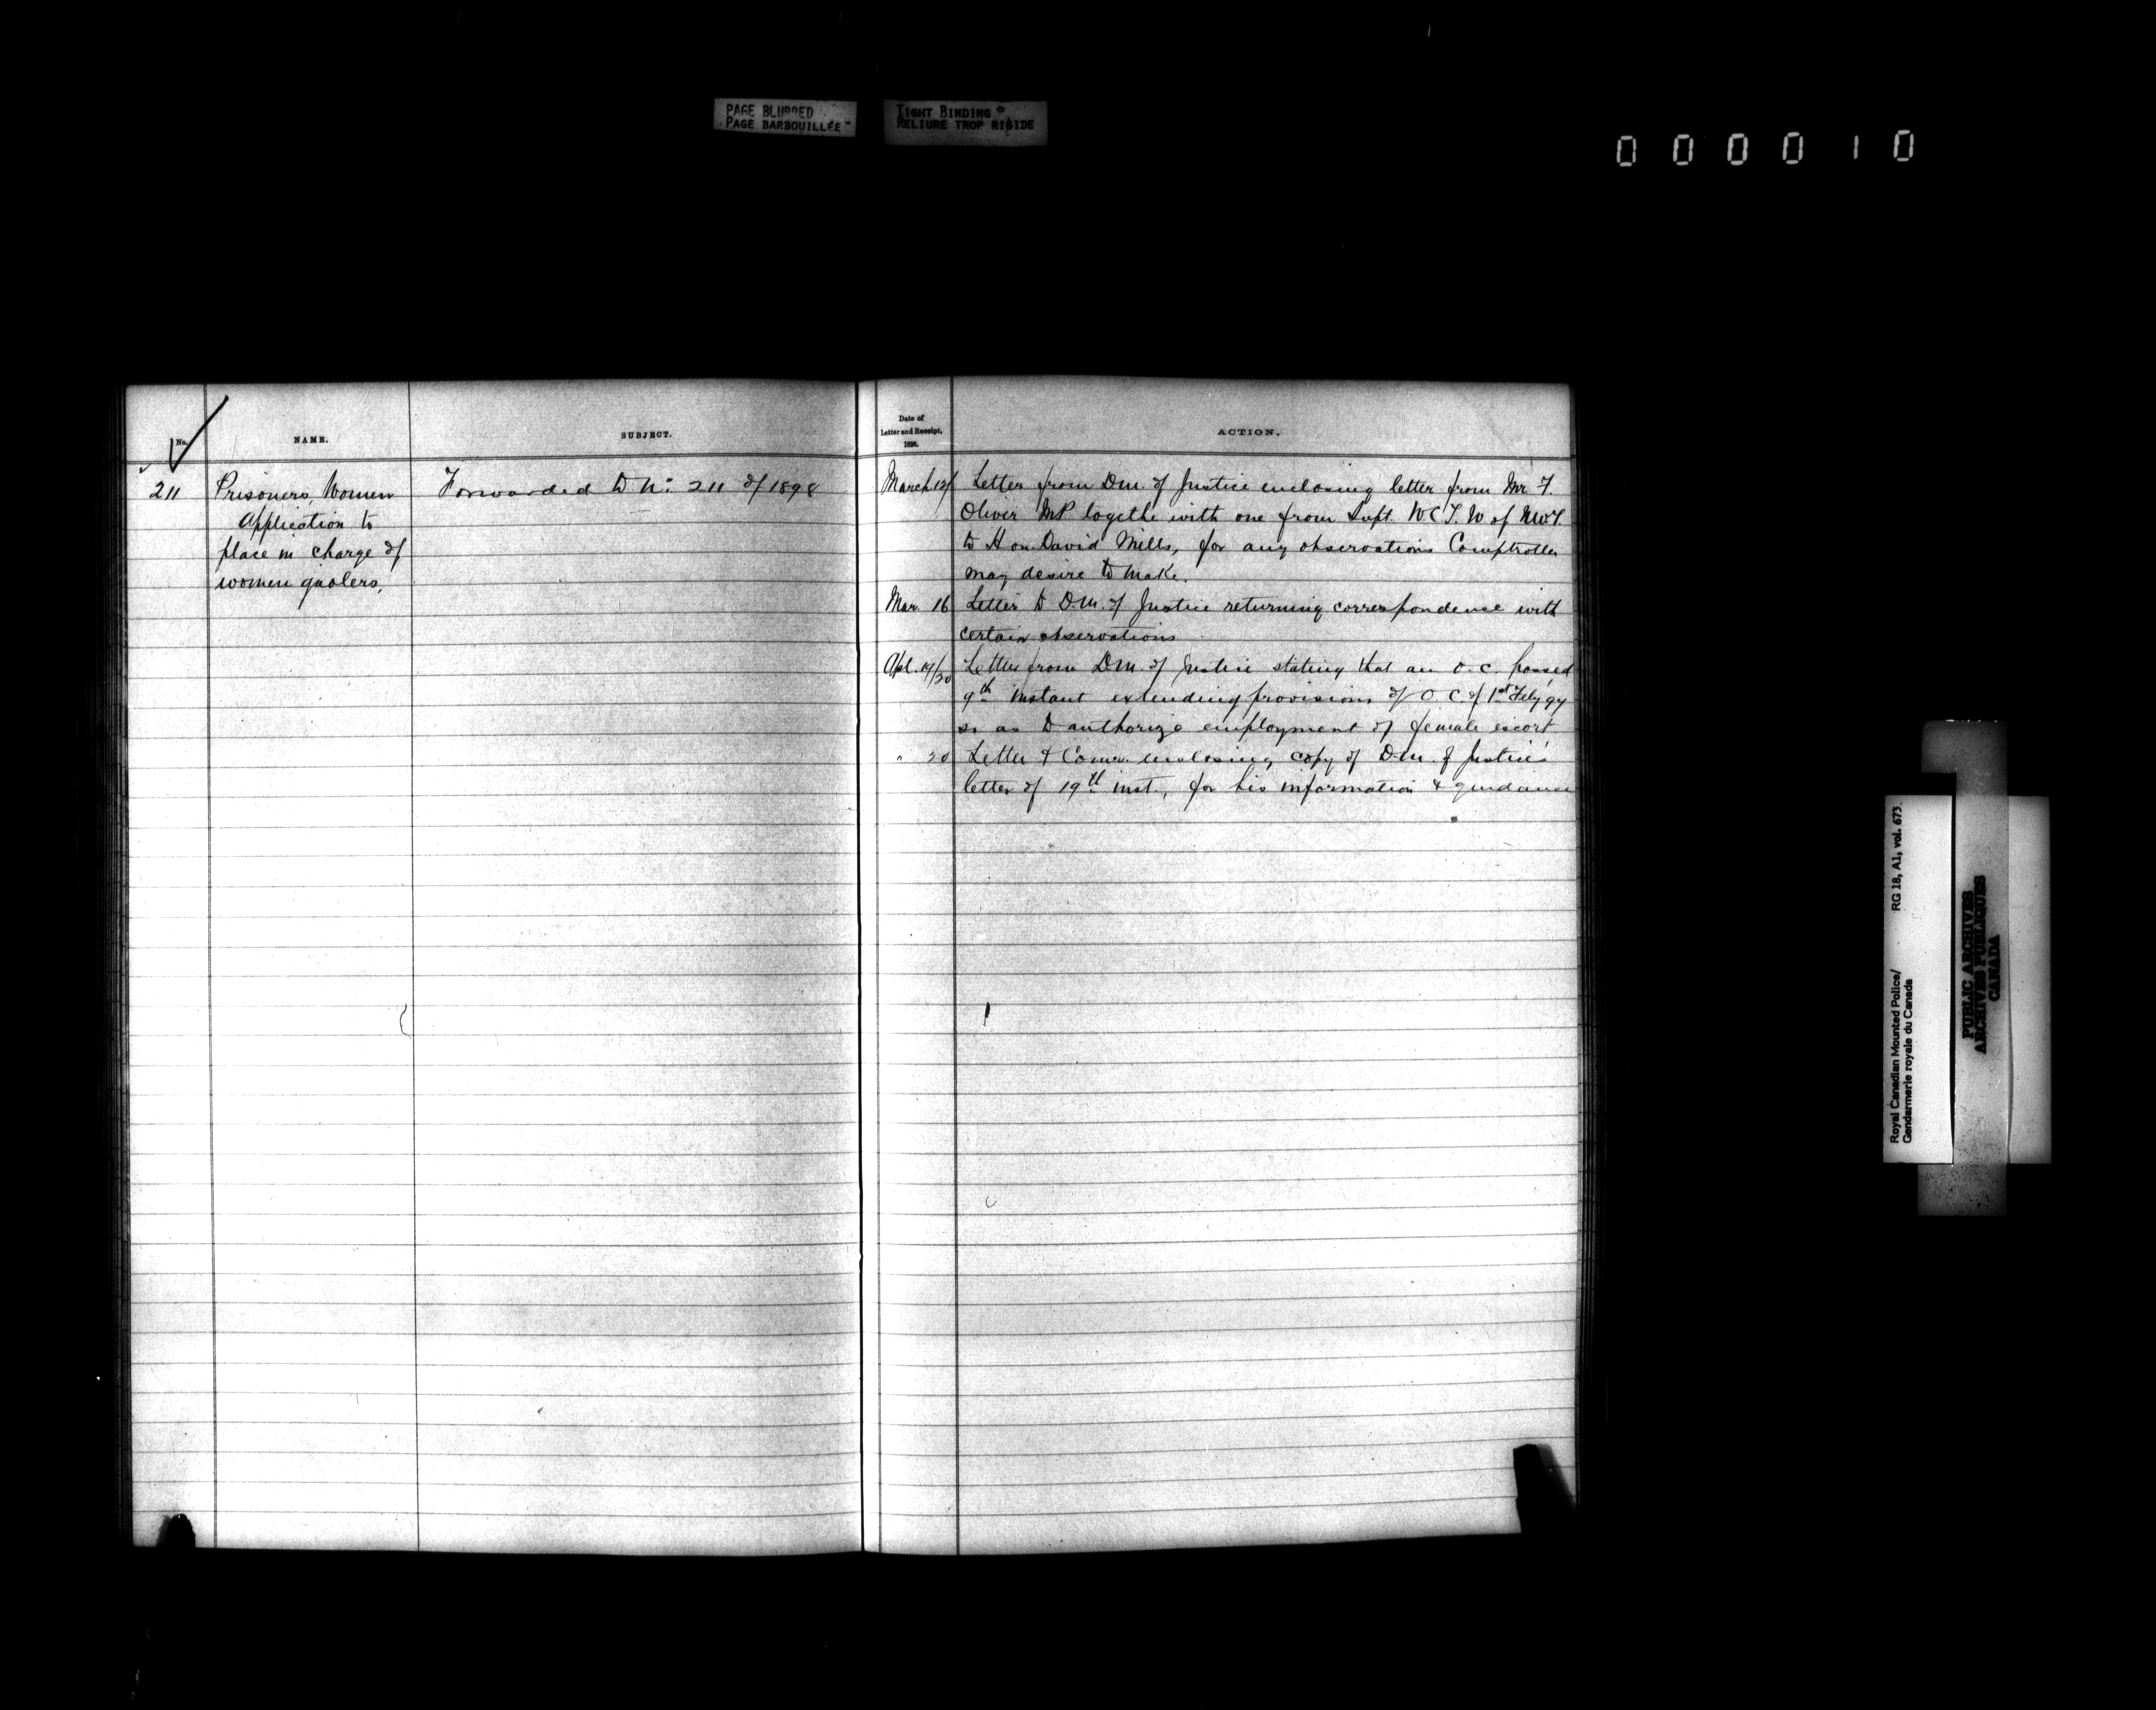 PAGE BLURRED
PAGE BARBOUILLÉE
TIGHT BINDING
RELIURE TROP RIGIDE
000010
No.
NAME.
SUBJECT.
211
Prisoners, Women
Application to
place in charge of
women gaolers,
Forwarded to No. 211 of 1898
Date of
Letter and Receipt.
1898.
ACTION.
March 12/ Letter from D.M. of Justice enclosing letter from Mr F.
Oliver MP togethe with one from Supt. W C T. W of NWT.
to Hon. David Mills, for any observations Comptroller
may desire to make.
Mar. 16 Letter to D.M. of Justice returning correspondence with
certain observations
Apl. 19/20 Letter from D.M. of Justice stating that an O.C. passed
9th instant extending provisions of O C. of 1st Feby 97
so as to authorize employment of female escort
" 20 Letter to Comr. enclosing copy of D.M. of Justice's
letter of 19th inst., for his information & guidance
Royal Canadian Mounted Police/
Gendarmerie royale du Canada
RG 18, A1, vol. 673.
PUBLIC ARCHIVES
ARCHIVES PUBLIQUES
CANADA